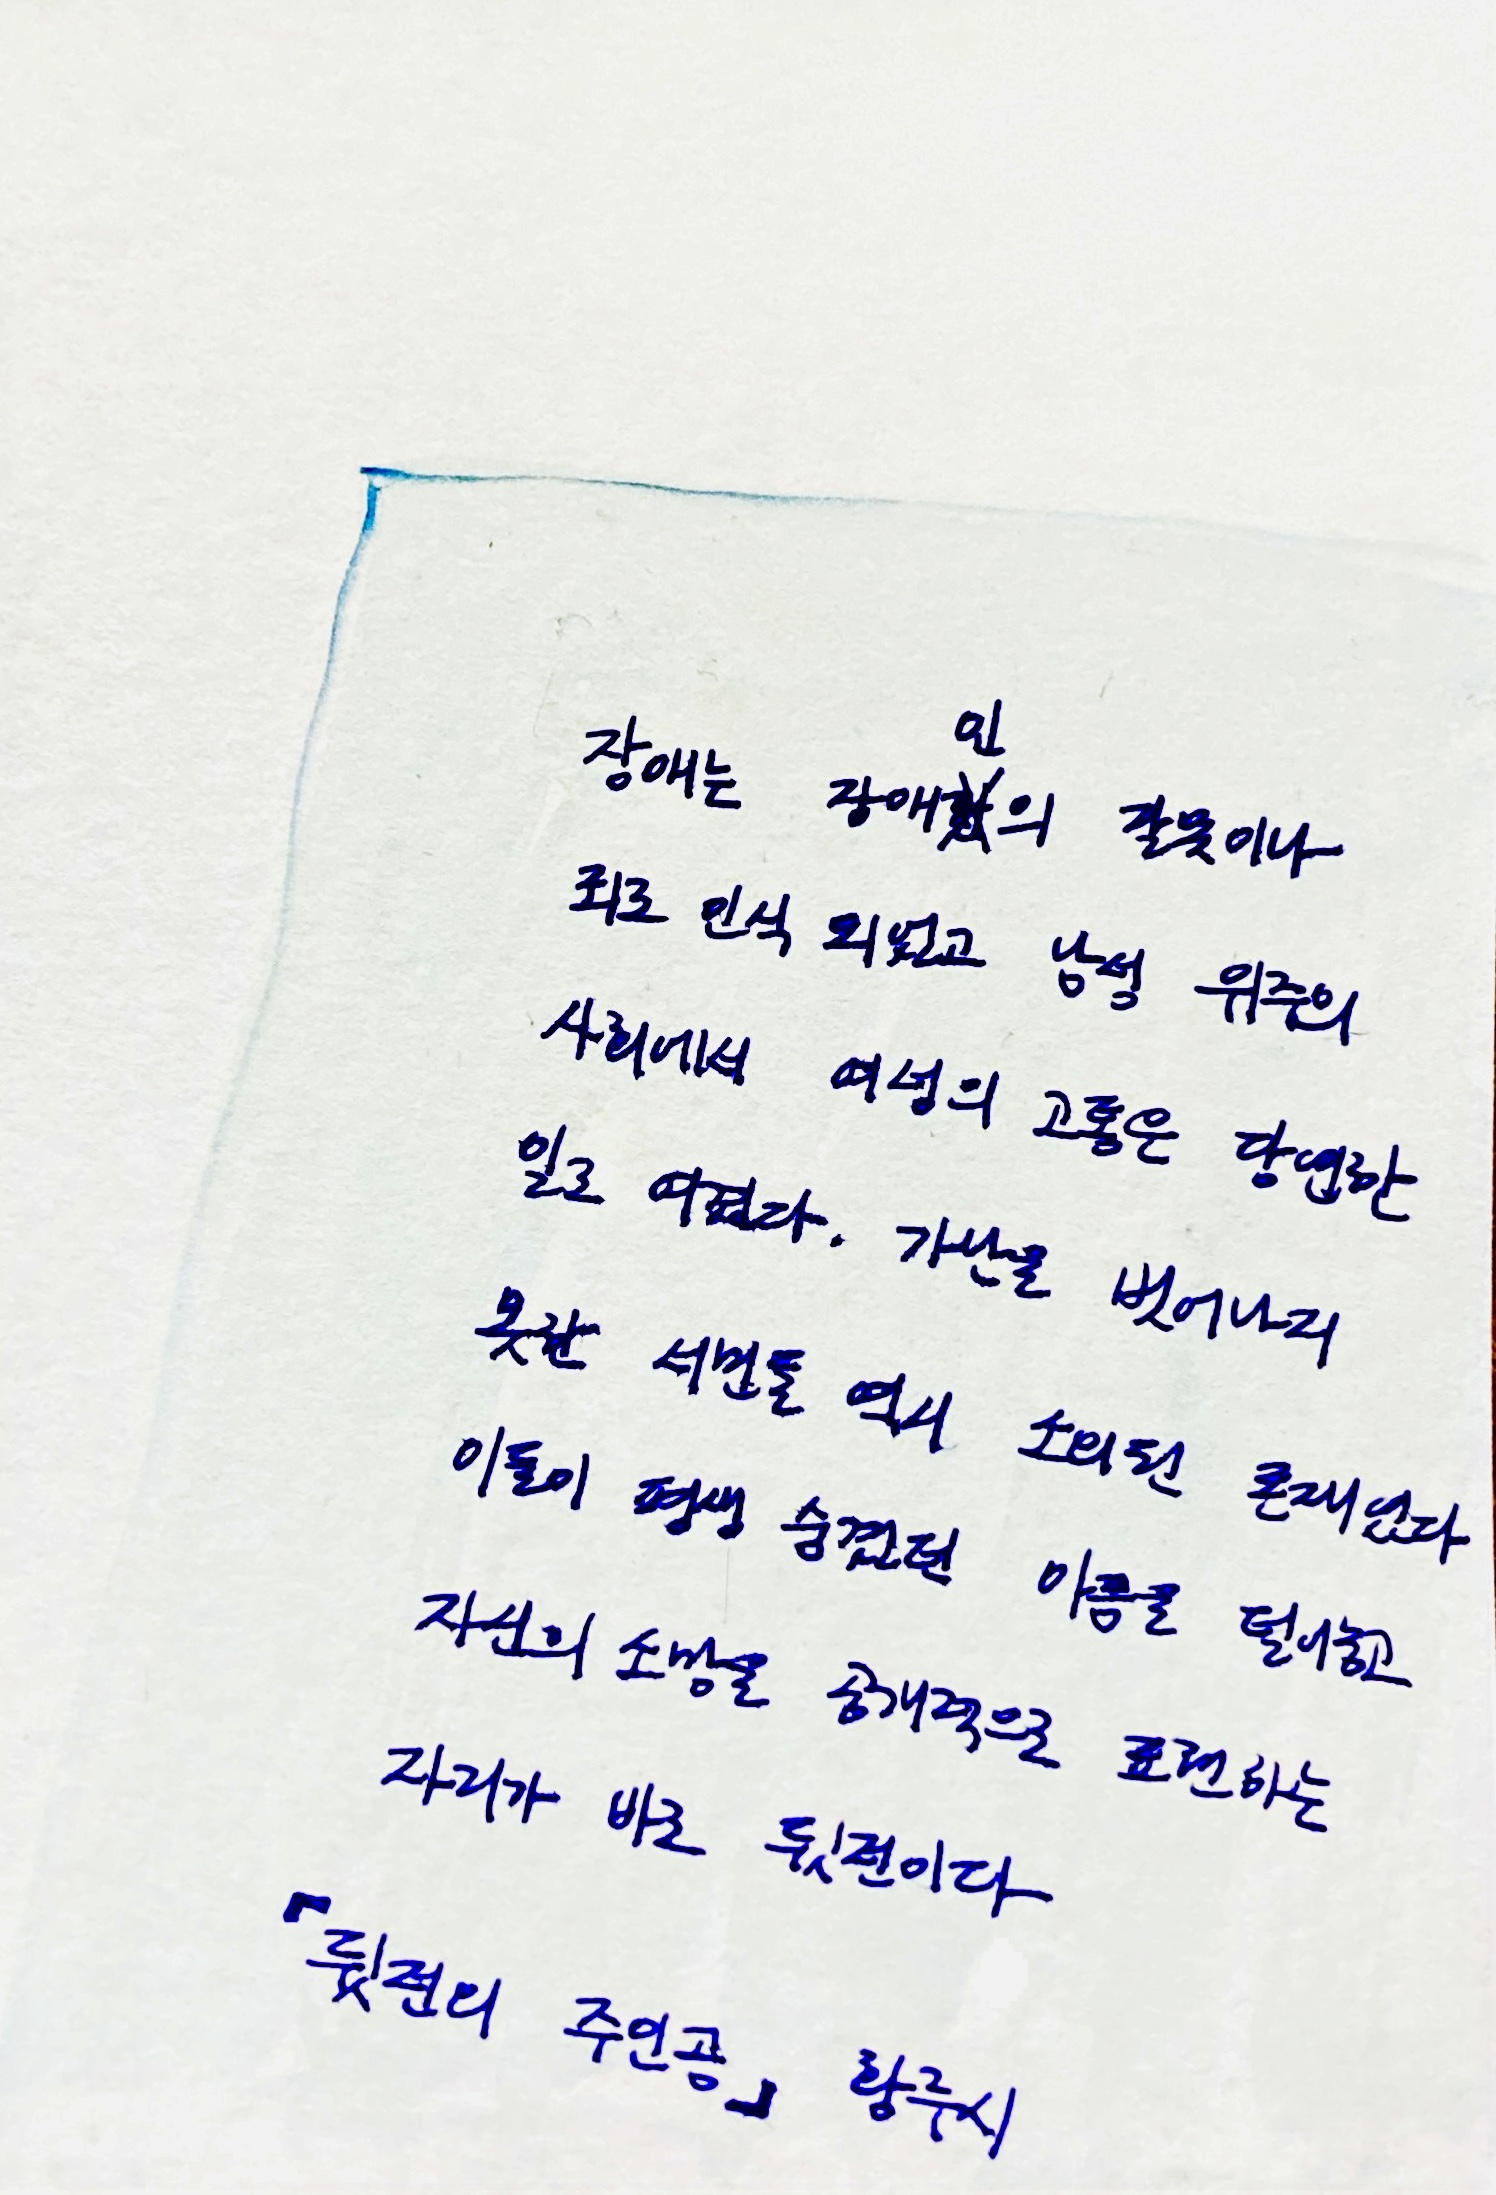 장애는 장애인의 잘못이나
죄로 인식 되었고 남성 위주의
사회에서 여성의 고통은 당연한
일로 여겼다. 가난을 벗어나지
못한 서민들 역시 소외된 존재였다
이들이 평생 숨겼던 아픔을 털어놓고
자신의 소망을 공개적으로 표현하는
자리가 바로 뒷전이다
『뒷전의 주인공』 황루시